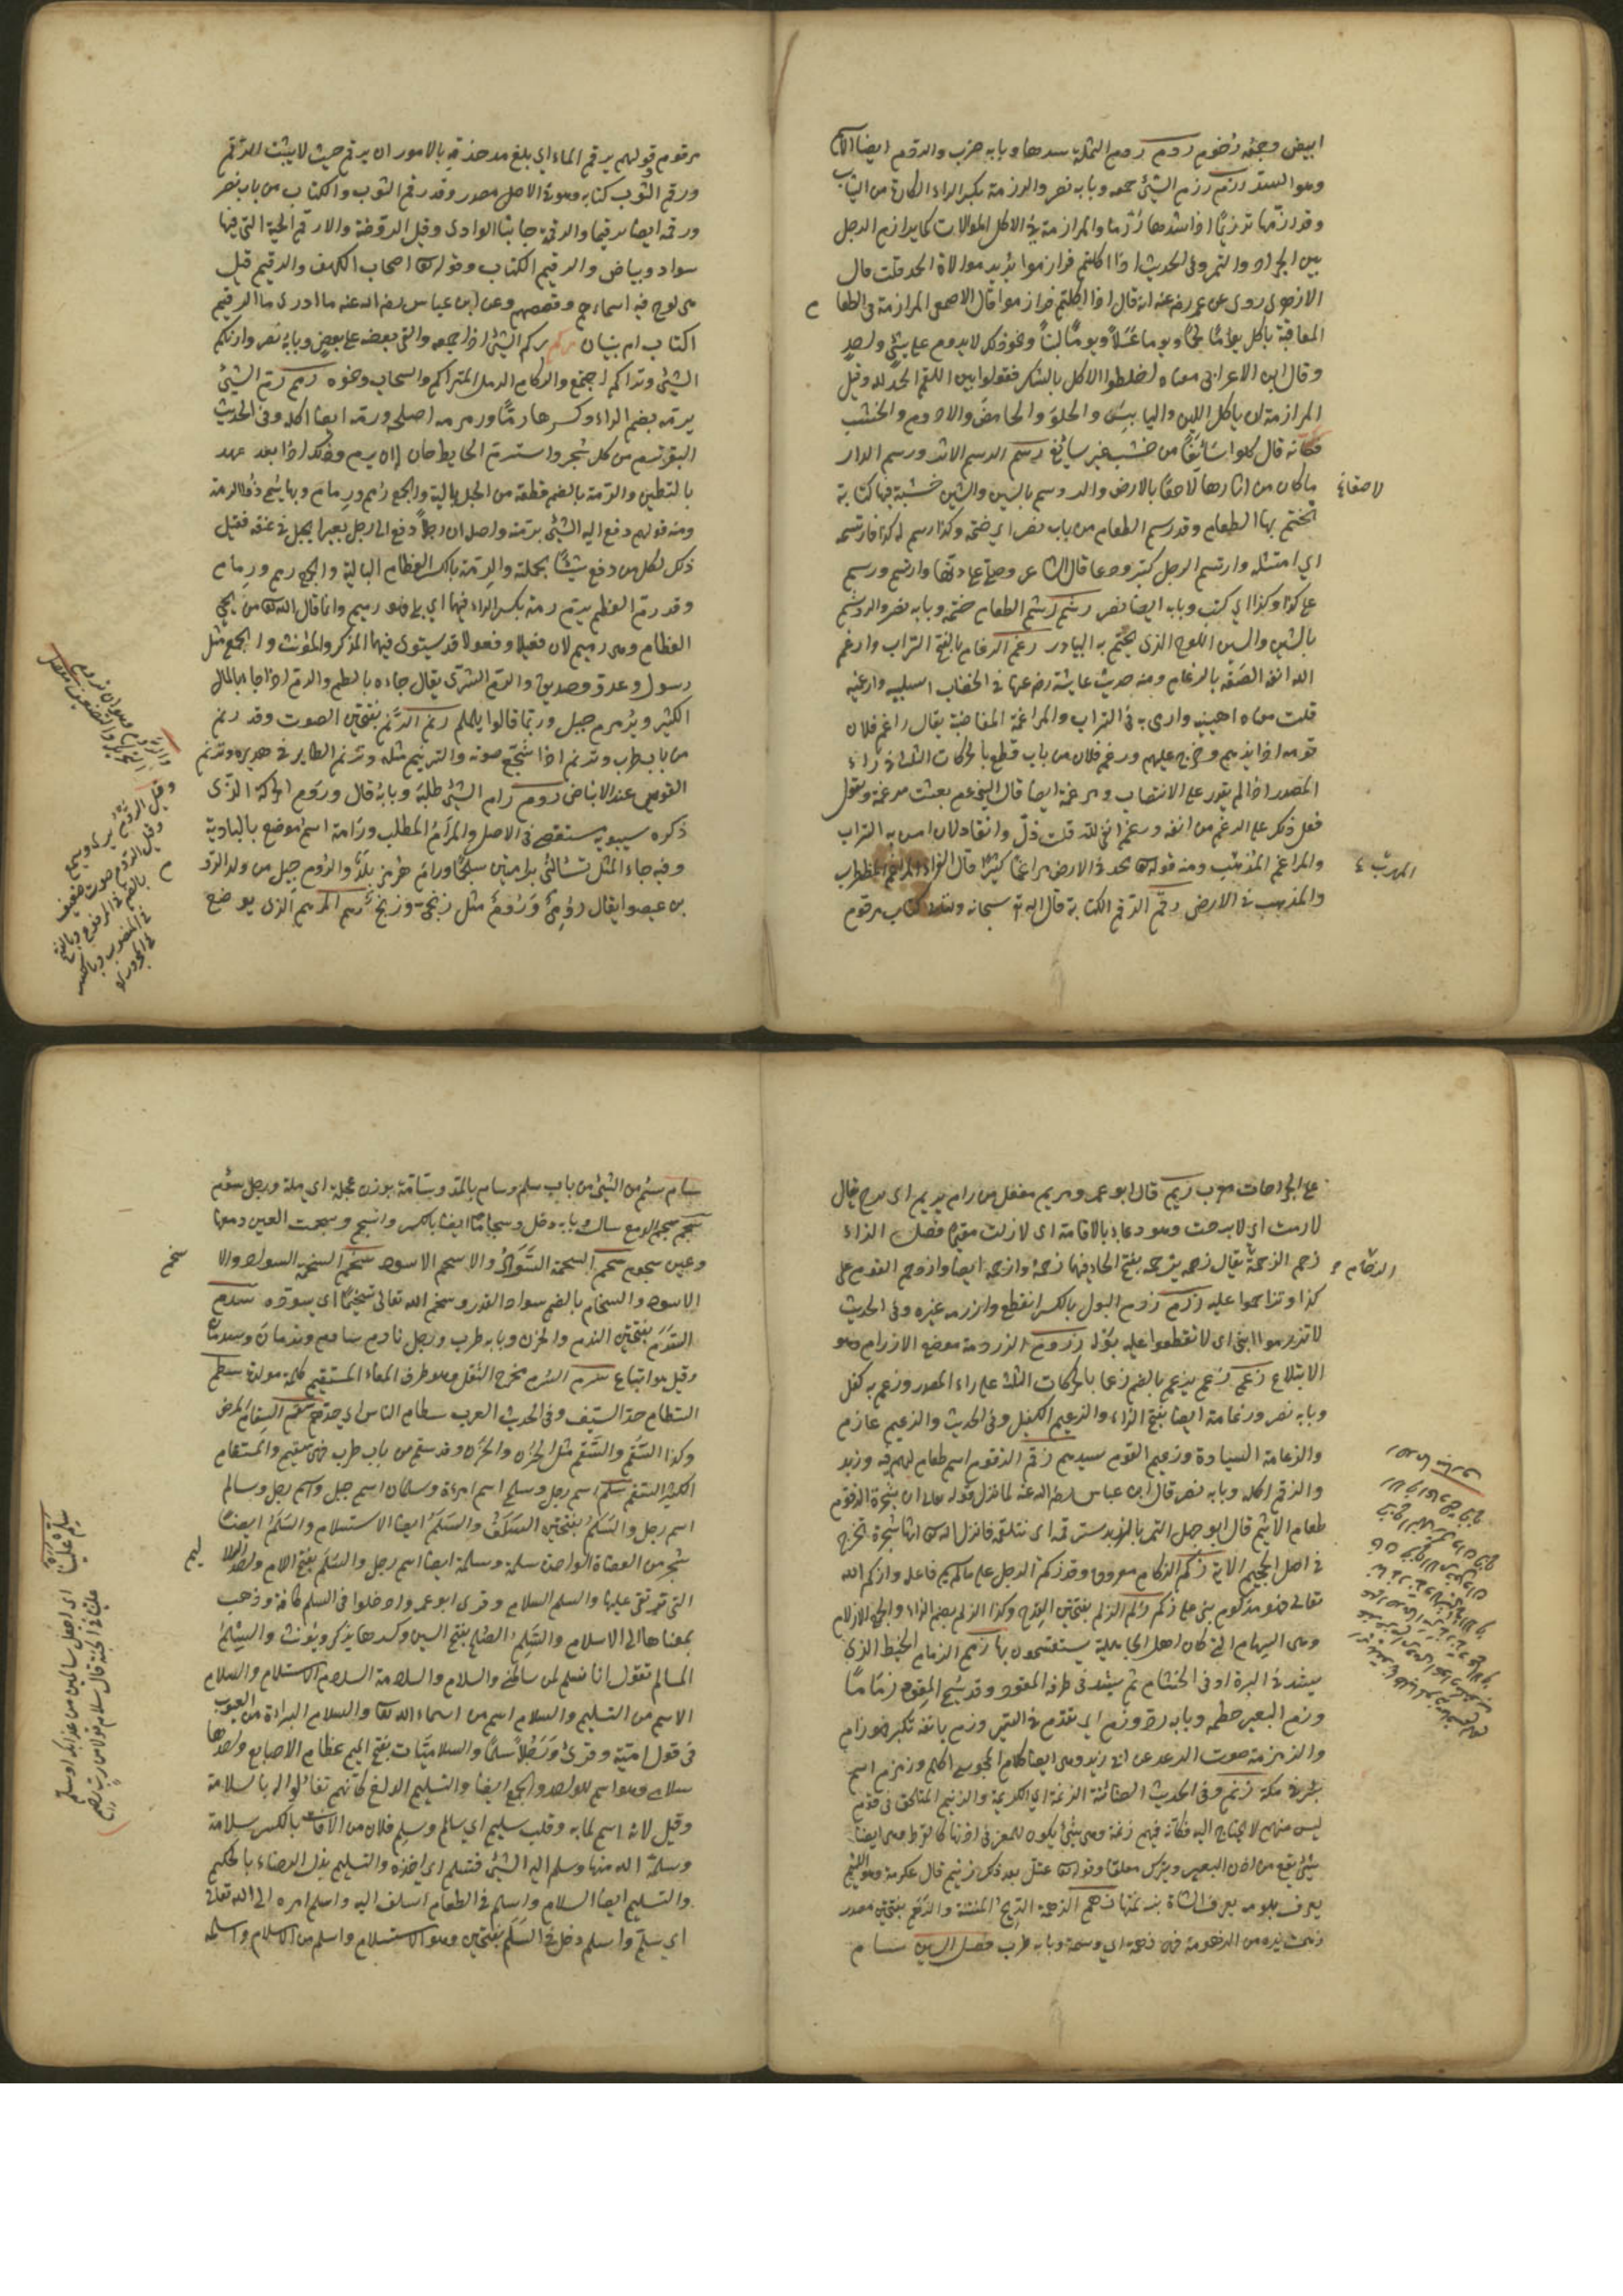 ابيض وجمعه رخوم ردم ردم الثلمة سدها وبابه ضرب والردم ايضا الاسم
وهو السد رزم رزم الشئ جمعه وبابه نصر والرزمة بكسر الراء الكارة من الثياب
وقد رزمها ترزيما اذا شدها رزما والمرازمة في الاكل الموالات كما يرازم الرجل
بين الجراد والتمر وفي الحديث اذا اكلتم فرازموا يريد موالاة الحمد قلت قال
الازهرى روى عن عمر رضه عنه انه قال اذا اكلتم فرازموا قال الاصمعي المرازمة في الطعا م
المعاقبة يأكل يوما لحما ويوما عسلا ويوما لبنا ونحو ذلك لا يدوم على شئ واحد
وقال ابن الاعرابى معناه اخلطوا الاكل بالشكر فقولوا بين اللقم الحمد لله وقيل
المرازمة ان ياكل اللين واليابس والحلو والحامض والادوم والخشب
فكأنه قال كلوا سائغا من خشب غير سائغ رسم الرسم الاثر ورسم الدار
ما كان من اثارها لاحقا بالارض والروسم بالسين والشين خشبة فيها كتابة
لاصقا
يختم بها الطعام وقد رسم الطعام من باب نصر اي ختمه وكذا رسم له كذا فارتسمه
اي امتثله وارتسم الرجل كبر ودعا قال الشاعر وصلى على دنها وارتسم ورسم
على كذا وكذا اي كتب وبابه ايضا نصر رشم رشم الطعام ختمه وبابه نصر والروشم
بالشين والسين اللوح الذي يختم به البيادر رغم الرغام بالفتح التراب وارغم
الله انفه الصقه بالرغام ومنه حديث عايشة رضي عنها في الخضاب اسلتيه وارغميه
قلت معناه اهينيه وارمى به في التراب والمراغمة المغاضبة يقال راغم فلان
قومه اذا نابذهم وخرج عليهم ورغم فلان من باب قطع بالحركات الثلث في راء
المصدر اذا لم يقدر على الانتصاف ومرغمة ايضا قال النبي عم بعثت مرغمة وتقول
فعل ذلك على الرغم من انفه ورغم انفي لله قلت ذل وانقاد لان امس به التراب
والمراغم المذهب ومنه قوله تعالى يجد في الارض مراغما كثيرا قال الفراء المراغم المضطرب
المهرب
والمذهب في الارض رقم الرقم الكتابة قال الله تع سبحانه وتعالى كتاب مرقوم
مرقوم وقولهم يرقم الماء اي بلغ من حذقه بالامور ان يرقم حيث لا يثبت الرقم
ورقم الثوب كتابه وهو في الاصل مصدر وقد رقم الثوب والكتاب من باب نصر
ورقمه ايضا ترقيما والرقمة جانب الوادي وقيل الروضة والارقم الحية التي فيها
سواد وبياض والرقيم الكتاب وقوله تعالى اصحاب الكهف والرقيم قيل
هو لوح فيه اسماءهم وقصصهم وعن ابن عباس رضي الله عنه ما ادرى ما الرقيم
اكتاب ام بنيان ركم ركم الشئ اذا جمعه والقى بعضه على بعض وبابه نصر وارتكم
الشئ وتراكم اجتمع والركام الرمل المتراكم والسحاب ونحوه رمم رم الشئ
يرمه بضم الراء وكسرها رما ومرمه اصلحه ورمه ايضا اكله وفى الحديث
البقر ترم من كل شجر واسترم الحايط حان له ان يرم وذلك اذا بعد عهده
بالتطيين والرمة بالضم قطعة من الحبل بالية والجمع رمم ورمام وبها سمى ذو الرمة
ومنه قولهم دفع اليه الشئ برمته واصله ان رجلا دفع الى رجل بعيرا بحبل في عنقه فقيل
ذلك لكل من دفع شيئا بجملته والرمة بالكسر العظام البالية والجمع رمم ورمام
وقد رم العظم يرم رمة بكسر الراء فيهما اي بلى فهو رميم وانما قال الله تع من يحيي
العظام وهى رميم لان فعيلا وفعولا قد يستوى فيهما المذكر والمؤنث والجمع مثل
رسول وعدو وصديق والرم الثرى يقال جاءه بالطم والرم اذا جاء بالمال
الكثير ويرمرم جبل وربما قالوا يلملم رنم الرنم بفتحتين الصوت وقد رنم
من باب طرب وترنم اذا رجع صوته والترنيم مثله وترنم الطاير في هديره وترنم
القوس عند الانباض روم رام الشئ طلبه وبابه قال وروم الحركة الذى
ذكره سيبويه مستقصى في الاصل والمرام المطلب ورامة اسم موضع بالبادية
وفيه جاء المثل تسألني برامتين سلجما ورامهرمز بلد والروم جيل من ولد الروم
بن عيصو يقال رومى وروم مثل زنجى وزنج ريم المريم الذى يوضع
وقيل الروم صوت ضعيف
على الجراحات معرب ريم قال ابو عمرو ومريم مفعل من رام يريم اى برح يقال
لا رمت اي لا برحت وهو دعاء بالاقامة اى لا زلت مقيما فصل الزاء
زحم الزحمة يقال زحمه يزحمه بفتح الحاء فيهما زحمة وازحمه ايضا وازدحم القوم على
الزحام
كذا وتزاحموا عليه زرم زرم البول بالكسر انقطع وازرمه غيره وفى الحديث
لا تزرموا ابنى اى لا تقطعوا عليه بوله زردم الزردمة موضع الازدرام وهو
الابتلاع زعم زعم يزعم بالضم زعما بالحركات الثلث على زاء المصدر وزعم به كفل
وبابه نصر وزعامة ايضا بفتح الزاء والزعيم الكفيل وفى الحديث والزعيم غارم
والزعامة السيادة وزعيم القوم سيدهم زقم الزقوم اسم طعام لهم فيه تمر وزبد
والزقم اكله وبابه نصر قال ابن عباس رضي الله عنه لما نزل قوله تعالى ان شجرة الزقوم
طعام الاثيم قال ابو جهل التمر بالزبد نتزقمه اى نتلقمه فانزل الله تع انها شجرة تخرج
في اصل الجحيم الاية زكم الزكام معروف وقد زكم الرجل على ما لم يسم فاعله وازكمه الله
تعالى فهو مزكوم بنى على زكم زلم الزلم بفتحتين القدح وكذا الزلم بضم الزاء والجمع الازلام
وهى السهام التي كان اهل الجاهلية يستقسمون بها زمم الزمام الخيط الذي
يشد في البرة او فى الخشاش ثم يشد في طرفه المقود وقد يسمى المقود زماما
وزم البعير خطمه وبابه رد وزم اى تقدم في السير وزم بانفه تكبر فهو زام
والزمزمة صوت الرعد عن ابى زيد وهى ايضا كلام المجوس عند اكلهم وزمزم اسم
بئر في مكة زنم وفى الحديث الضائنة الزنمة اي الكريمة والزنيم المستلحق في قوم
ليس منهم لا يحتاج اليه فكأنه فيهم زنمة وهى شئ يكون للمعز فى اذنها كالقرط وهى ايضا
شئ يقطع من اذن البعير ويترك معلقا وقوله تعالى عتل بعد ذلك زنيم قال عكرمة هو اللئيم
يعرف بلومه كما يعرف الشاة بزنمتها زهم الزهمة الريح المنتنة والزهم بفتحتين مصدر
زهمت يده من الزهومة فهى زهمة اي دسمة وبابه طرب فصل السين سام
سام سئم من الشئ من باب سلم وسام بالمد وسآمة بوزن عجلة اى مله ورجل سؤم
سجم سجم الدمع سال وبابه دخل وسجاما ايضا بالكسر وانسجم وسجمت العين دمعها
وعين سجوم سحم السحمة السواد والاسحم الاسود سخم السخمة السواد والا
سخم
الاسود والسخام بالضم سواد القدر وسخم الله تعالى تسخيما اى سوده سدم
السدم بفتحتين الندم والحزن وبابه طرب ورجل نادم سادم وندمان وسدمان
وقيل هو اتباع سرم السرم مخرج الثفل وهو طرف المعاء المستقيم كلمة مولدة سطم
السطام حد السيف وفى الحديث العرب سطام الناس اى حدهم سقم السقام المرض
وكذا السقم والسقم مثل الحزن والحزن وقد سقم من باب طرب فهو سقيم والمسقام
الكثير السقم سلم اسم رجل وسلمى اسم امرءة وسلمان اسم جبل واسم رجل وسالم
اسم رجل والسلم بفتحتين السلف والسلم ايضا الاستسلام والسلم ايضا
شجر من العضاة الواحدة سلمة وسلمة ايضا اسم رجل والسلم بفتح اللام واحد السلا
ليم
التى ترتقى عليها والسلم السلام وقرئ ابو عمرو ادخلوا فى السلم كافة وذهب
بمعناها الى الاسلام والسلم الصلح بفتح السين وكسرها يذكر ويؤنث والسلم
المسالم تقول انا سلم لمن سالمنى والسلام والسلامة السلامة الاستسلام والسلام
الاسم من التسليم والسلام اسم من اسماء الله تعالى والسلام البراءة من العيوب
في قول امية وقرئ ورجلا سلما والسلاميات بفتح الميم عظام الاصابع واحدها
سلامى وهو اسم للواحد والجمع ايضا والسليم اللديغ كأنهم تفائلوا له بالسلامة
وقيل لانه اسلم لما به وقلب سليم اي سالم وسلم فلان من الآفات بالكسر سلامة
وسلمه الله منها وسلم اليه الشئ فتسلمه اي اخذه والتسليم بذل الرضاء بالحكم
والتسليم ايضا السلام واسلم في الطعام اسلف اليه واسلم امره الى الله تعالى
اي سلم واسلم دخل في السلم بفتحتين وهو الاستسلام واسلم من الاسلام واسلمه